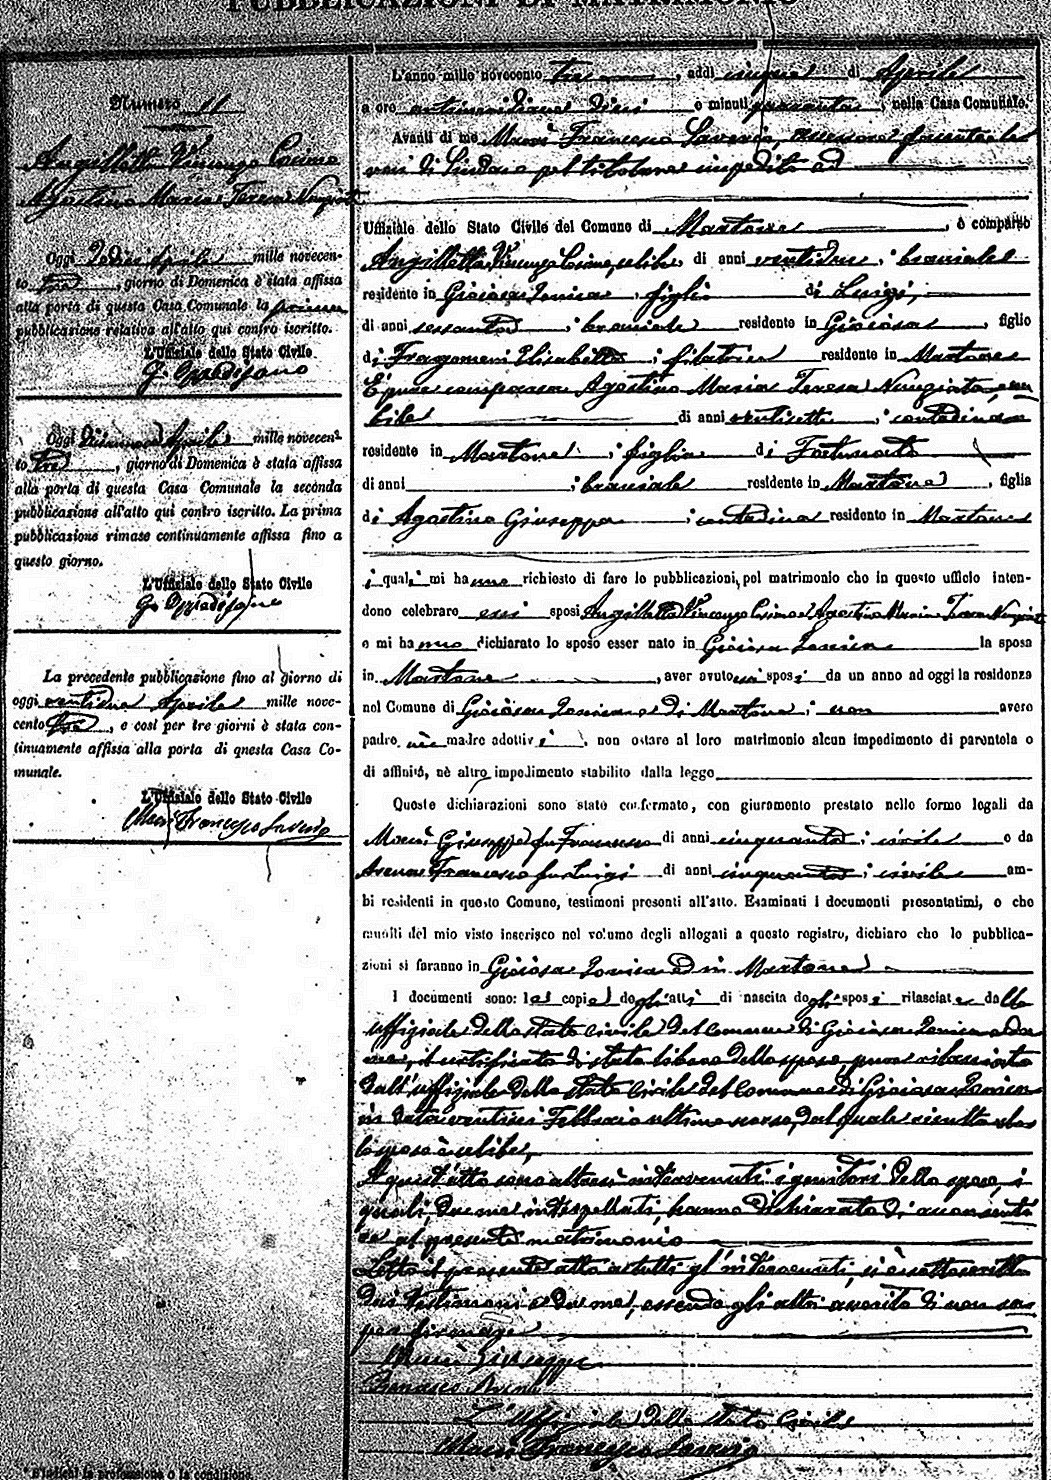 PUBBLICAZIONI DI MATRIMONIO
Numero 11
Angilletta Vincenzo Cosimo
Agostino Maria Teresa Nunziata
Oggi dodici Aprile mille novecen-
to tre, giorno di Domenica è stata affissa
alla porta di questa Casa Comunale la prima
pubblicazione relativa all'atto qui contro iscritto.
L'Uffiziale dello Stato Civile
Oggi diciannove Aprile mille novecen-
to tre, giorno di Domenica è stata affissa
alla porta di questa Casa Comunale la seconda
pubblicazione all'atto qui contro iscritto. La prima
pubblicazione rimase continuamente affissa fino a
questo giorno.
L'Uffiziale dello Stato Civile
La precedente pubblicazione fino al giorno di
oggi ventidue Aprile mille nove-
cento tre, e così per tre giorni è stata con-
tinuamente affissa alla porta di questa Casa Co-
munale.
L'Uffiziale dello Stato Civile
Macrì Francesco Saverio
L'anno mille novecento tre, addì cinque di Aprile
a ore antimeridiane dieci e minuti quaranta, nella Casa Comunale.
Avanti di me Macrì Francesco Saverio, assessore facente le
veci di Sindaco pel titolare impedito ed
Uffiziale dello Stato Civile del Comune di Martone, è comparso
Angilletta Vincenzo Cosimo, celibe, di anni ventidue, bracciale
residente in Gioiosa Jonica, figlio di Luigi,
di anni sessanta, bracciale residente in Gioiosa, figlio
di Fragomeni Elisabetta, filatrice residente in Martone
È pure comparsa Agostino Maria Teresa Nunziata, nu
bile di anni ventisette, contadina
residente in Martone, figlia di Fortunato
di anni , bracciale residente in Martone, figlia
di Agostino Giuseppa, contadina residente in Martone
i quali mi hanno richiesto di fare le pubblicazioni pel matrimonio che in questo ufficio inten-
dono celebrare essi sposi Angilletta Vincenzo Cosimo e Agostino Maria Teresa Nunziata
e mi hanno dichiarato lo sposo esser nato in Gioiosa Jonica la sposa
in Martone, aver avuto essi sposi da un anno ad oggi la residenza
nel Comune di Gioiosa Jonica e di Martone, non avere
padre nè madre adottivi, non ostare al loro matrimonio alcun impedimento di parentela o
di affinità, nè altro impedimento stabilito dalla legge
Queste dichiarazioni sono state confermate, con giuramento prestato nelle forme legali da
Macrì Giuseppe fu Francesco di anni cinquanta, civile e da
Arena Francesco fu Luigi di anni cinquanta, civile am-
bi residenti in questo Comune, testimoni presenti all'atto. Esaminati i documenti presentatimi, e che
muniti del mio visto inserisco nel volume degli allegati a questo registro, dichiaro che le pubblica-
zioni si faranno in Gioiosa Jonica ed in Martone
I documenti sono: le copie degli atti di nascita degli sposi rilasciate dallo
uffiziale dello stato civile del comune di Gioiosa Jonica e da
me, il certificato di stato libero dello sposo, pure rilasciato
dall'uffiziale dello stato civile del Comune di Gioiosa Jonica
in data Febbraio ultimo scorso, dal quale risulta che
lo sposo è celibe,
A quest'atto sono altresì intervenuti i genitori dello sposo, i
quali, da me interpellati, hanno dichiarato di acconsenti
re al presente matrimonio
Letto il presente atto a tutti gl'intervenuti, si è sottoscritto
dai testimoni e da me, essendo gli altri asserito di non sa
per firmare
Macrì Giuseppe
Francesco Arena
L'Uffiziale dello Stato Civile
Macrì Francesco Saverio
* S'indichi la professione o la condizione.